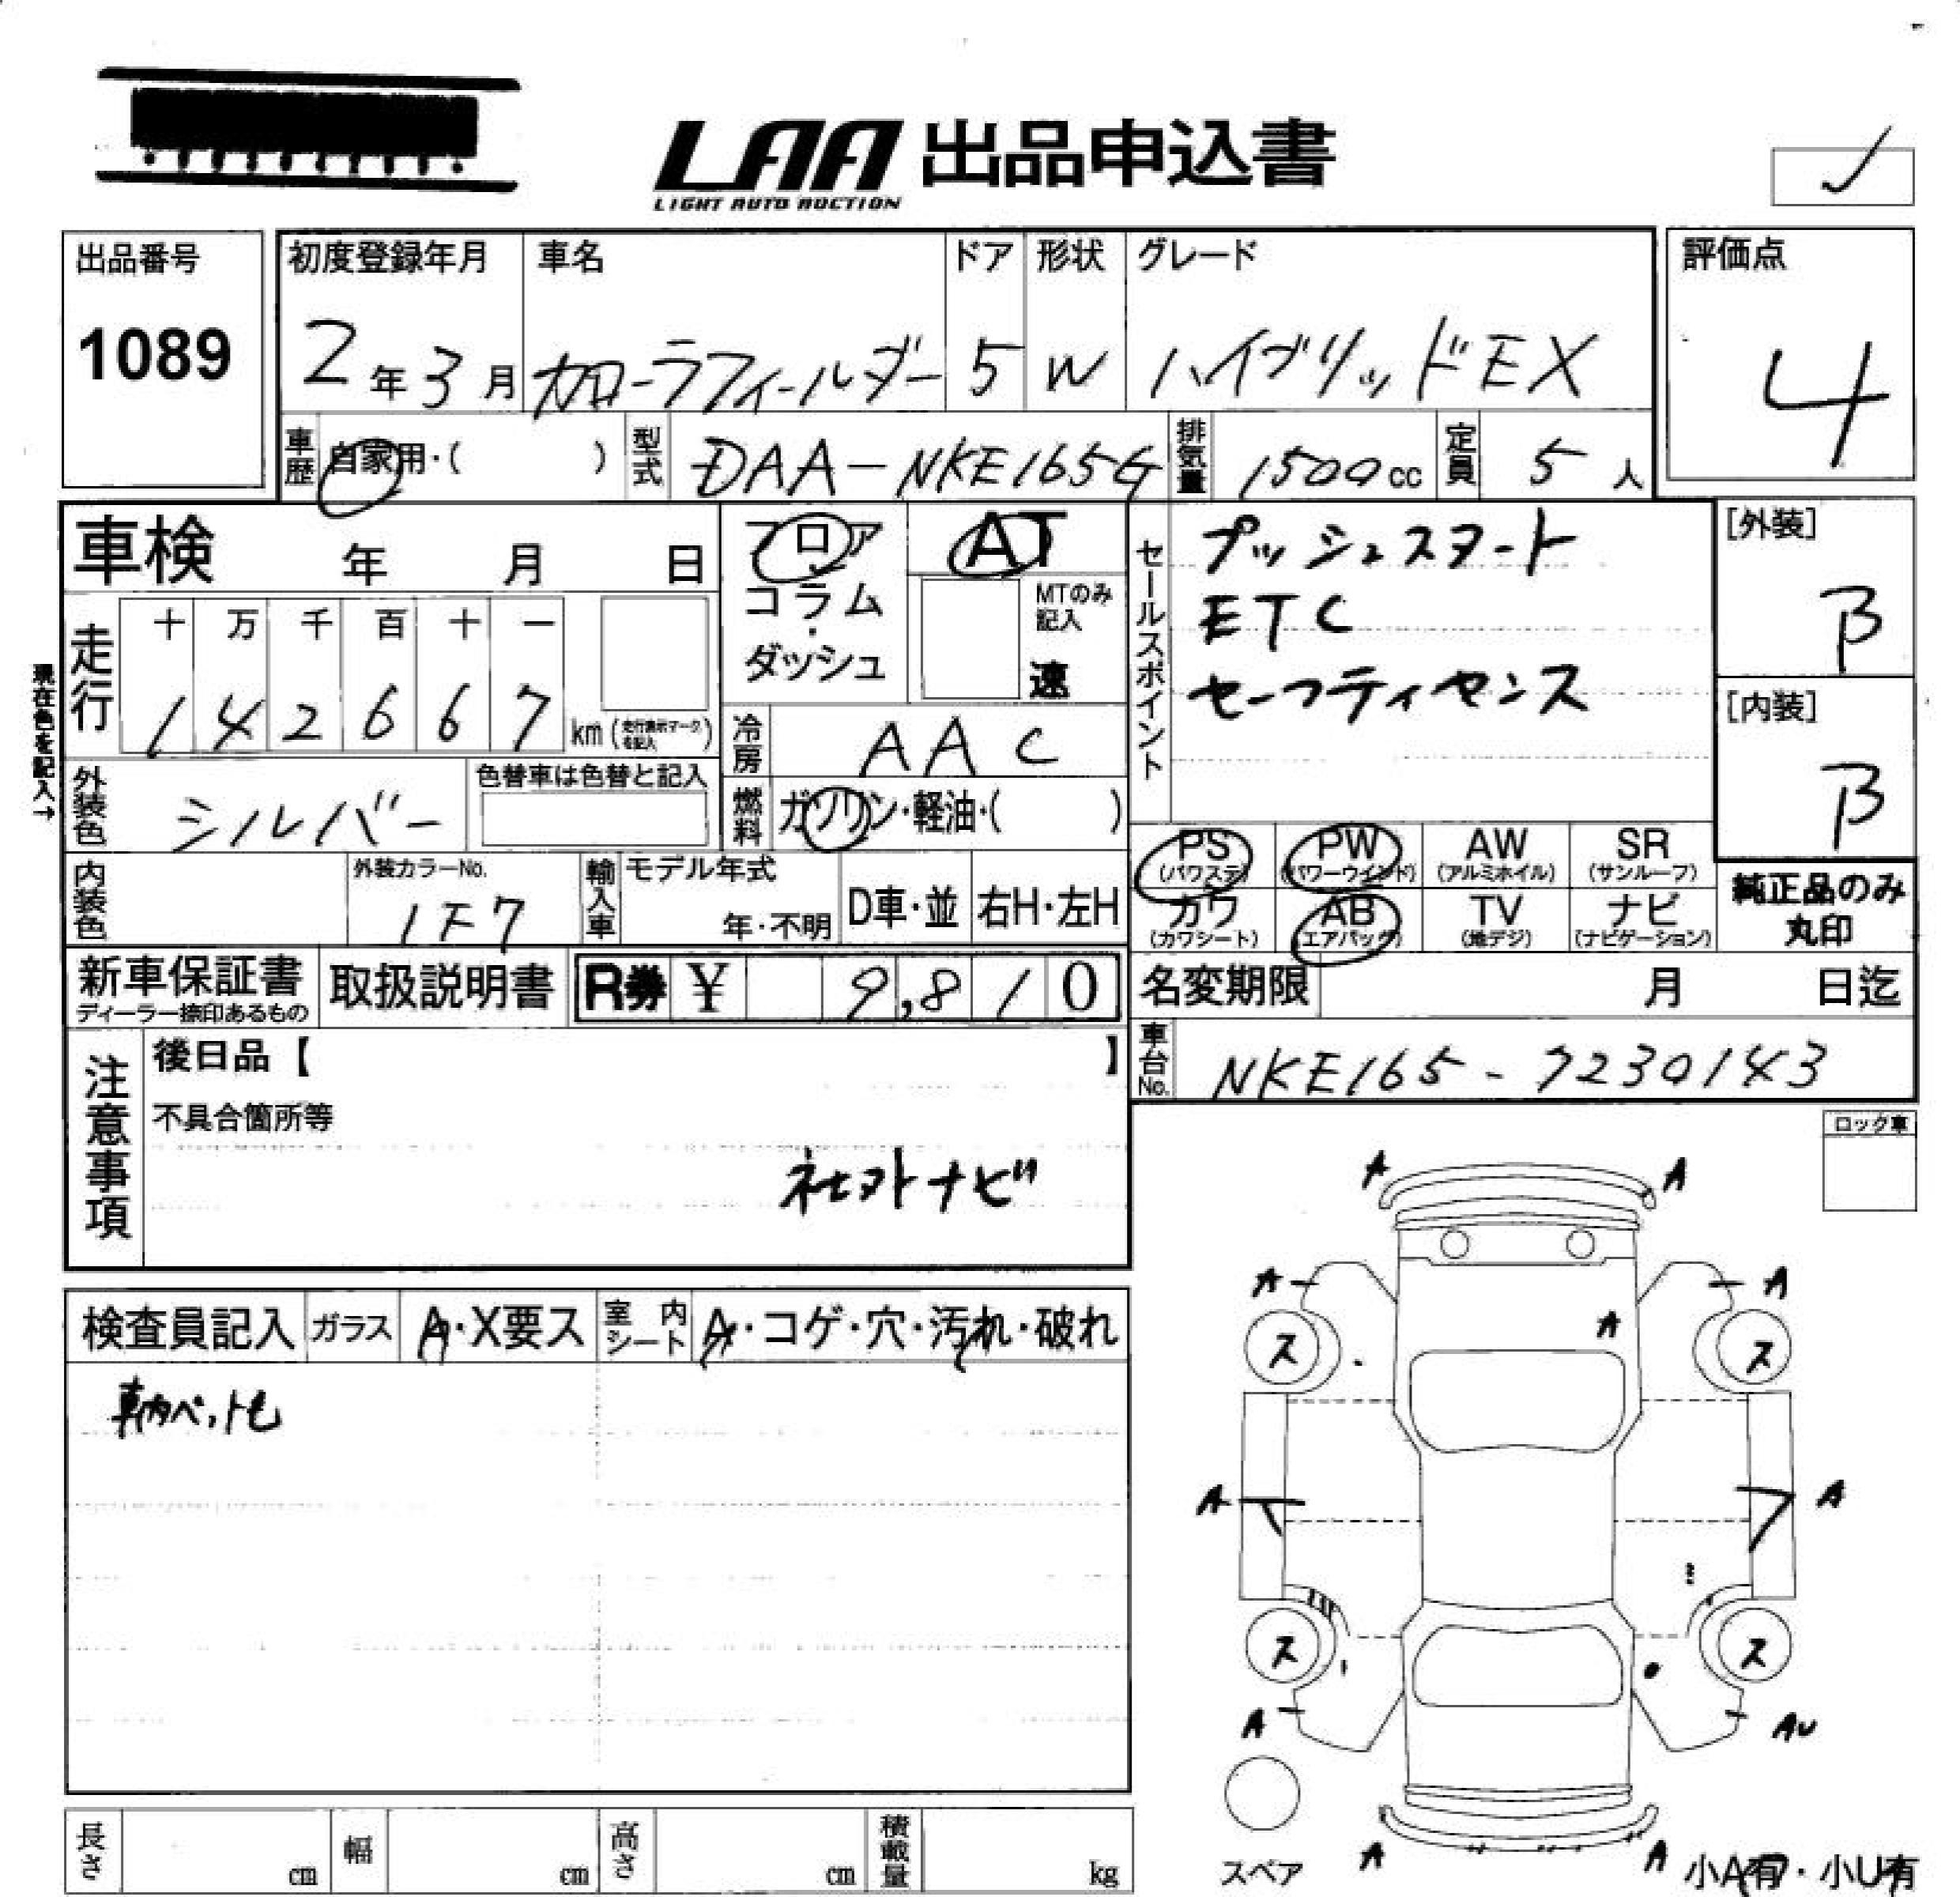 LAA 出品申込書
LIGHT AUTO AUCTION
出品番号
1089
初度登録年月
2年3月
車名
カローラフィールダー
ドア
5
形状
W
グレード
ハイブリッドEX
評価点
4
車歴
自家用・( )
型式
DAA-NKE165G
排気量
1500cc
定員
5人
車検 年 月 日
フロア
コラム
・
ダッシュ
AT
MTのみ
記入
速
セールスポイント
プッシュスタート
ETC
セーフティセンス
[外装]
B
[内装]
B
現在色を記入→
走行
十 万 千 百 十 一
1 4 2 6 6 7 km (走行表示マークを記入)
冷房
AAC
外装色
シルバー
色替車は色替と記入
燃料
ガソリン・軽油・( )
PS
(パワステ)
PW
(パワーウインド)
AW
(アルミホイル)
SR
(サンルーフ)
カワ
(カワシート)
AB
(エアバッグ)
TV
(地デジ)
ナビ
(ナビゲーション)
純正品のみ
丸印
内装色
外装カラーNo.
1F7
輸入車
モデル年式
年・不明
D車・並
右H・左H
新車保証書
ディーラー捺印あるもの
取扱説明書
R券 ¥ 9,810
名変期限 月 日迄
車台No.
NKE165-7230143
注意事項
後日品【 】
不具合箇所等
社外ナビ
ロック車
検査員記入
ガラス
A・X要ス
室内シート
A・コゲ・穴・汚れ・破れ
車内ペット毛
A A
A A
A
ス ス
A A
ス ス
A AU
A A
スペア
小A有・小U有
長さ cm
幅 cm
高さ cm
積載量 kg